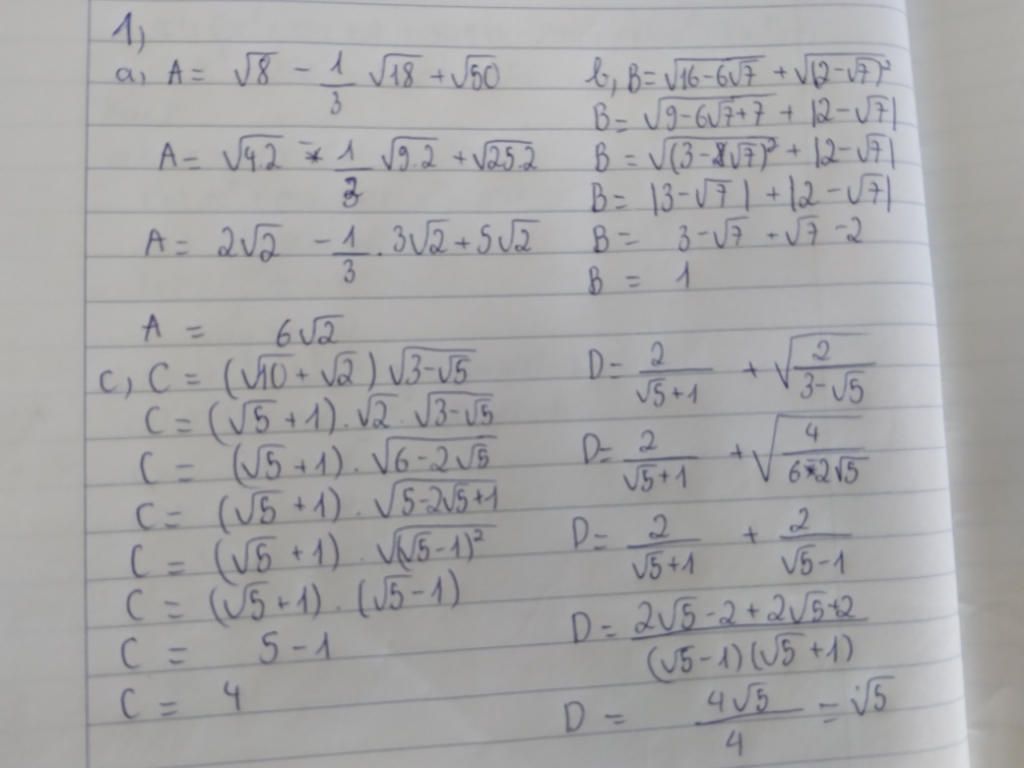 1,
a, A = √8 - 1/3 √18 + √50
A = √4.2 - 1/3 √9.2 + √25.2
A = 2√2 - 1/3 . 3√2 + 5√2
A = 6√2
b, B = √(16-6√7) + √(2-√7)²
B = √(9-6√7+7) + |2-√7|
B = √(3-√7)² + |2-√7|
B = |3-√7| + |2-√7|
B = 3-√7 + √7-2
B = 1
c, C = (√10 + √2) √(3-√5)
C = (√5 + 1) . √2 . √(3-√5)
C = (√5 + 1) . √(6-2√5)
C = (√5 + 1) . √(5-2√5+1)
C = (√5 + 1) . √(√5-1)²
C = (√5 + 1) . (√5-1)
C = 5-1
C = 4
D = 2/(√5+1) + √(2/(3-√5))
D = 2/(√5+1) + √(4/(6-2√5))
D = 2/(√5+1) + 2/(√5-1)
D = (2√5-2+2√5+2)/((√5-1)(√5+1))
D = 4√5/4 = √5